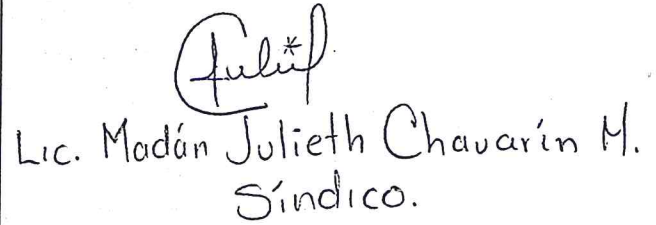 Lic. Madán Julieth Chavarín M.
Síndico.